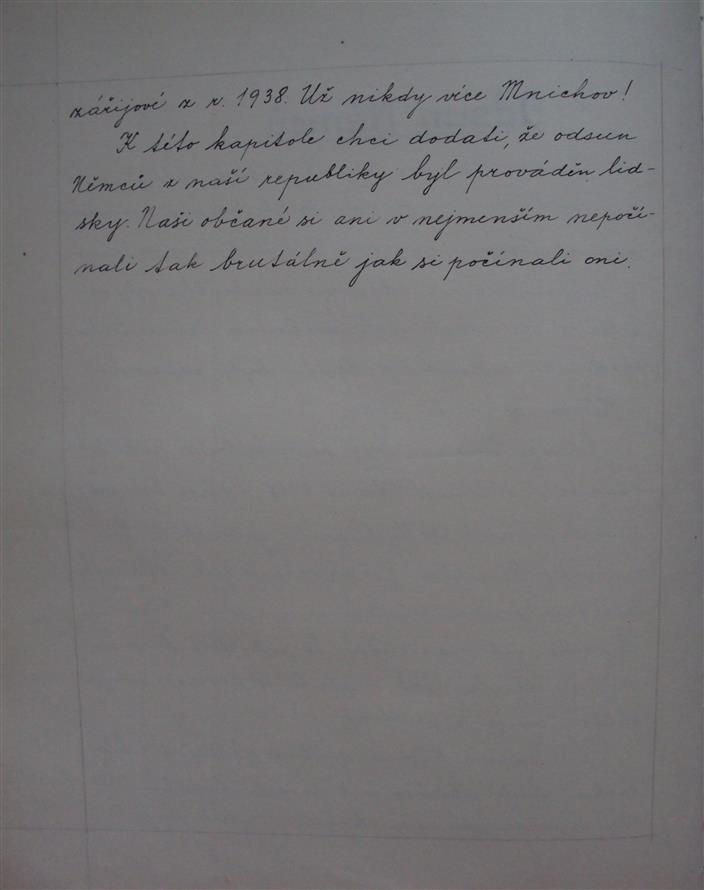 zářijové z r. 1938. Už nikdy více Mnichov!
K této kapitole chci dodati, že odsun
Němců z naší republiky byl prováděn lid-
sky. Naši občané si ani v nejmenším nepočí-
nali tak brutálně jak si počínali oni.